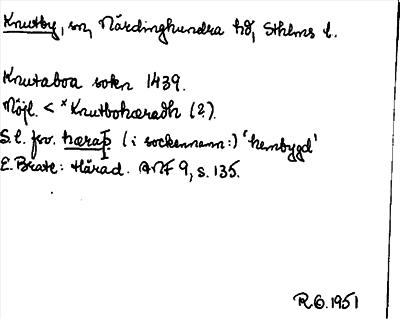 Knutby, sn, Närdinghundra hd, Sthlms l.
Knutaboa sokn 1439.
Möjl. < *Knutbohæradh (?).
S.l. fsv. hæraþ (i sockennamn:) 'hembygd'
E. Brate: Härad. ANF 9, s. 135.
R Ö. 1951